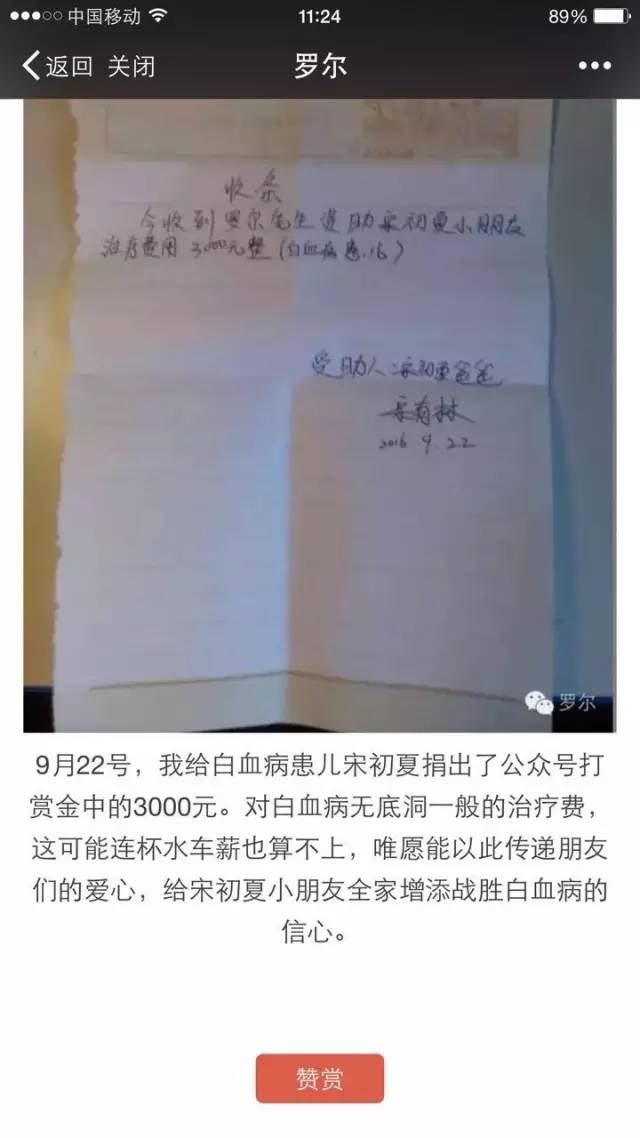 中国移动 11:24 89%
返回 关闭 罗尔
收条
今收到罗尔先生资助宋初夏小朋友
治疗费用 3000元整(白血病患
受助人:宋初夏爸爸
宋有林
2016 9.22
罗尔
9月22号，我给白血病患儿宋初夏捐出了公众号打
赏金中的3000元。对白血病无底洞一般的治疗费，
这可能连杯水车薪也算不上，唯愿能以此传递朋友
们的爱心，给宋初夏小朋友全家增添战胜白血病的
信心。
赞赏